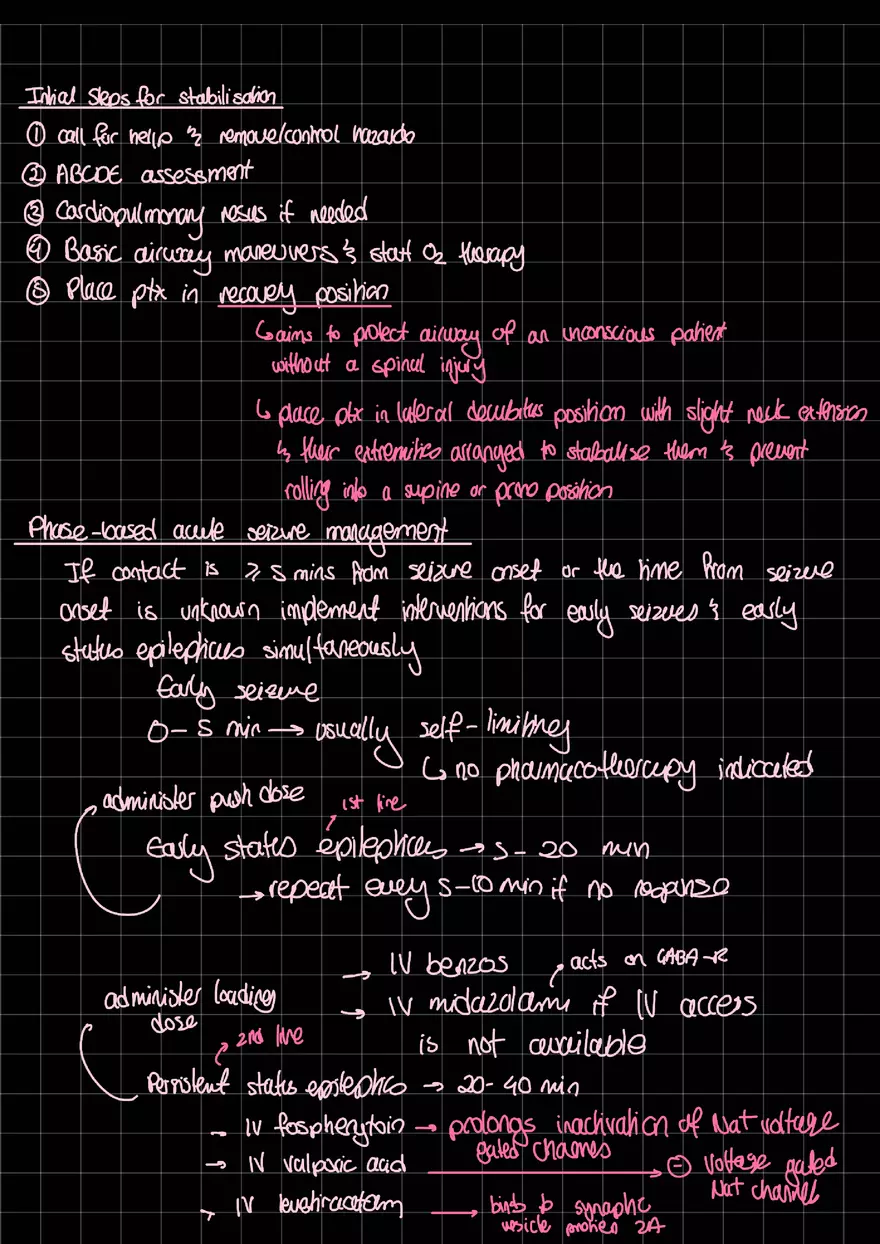 Initial steps for stabilisation
① call for help & remove/control hazards
② ABCDE assessment
③ Cardiopulmonary resus if needed
④ Basic airway maneuvers & start O2 therapy
⑤ Place ptx in recovery position
↳ aims to protect airway of an unconscious patient
without a spinal injury
↳ place ptx in lateral decubitus position with slight neck extension
& their extremities arranged to stabalise them & prevent
rolling into a supine or prone position
Phase-based acute seizure management
If contact is ≥ 5 mins from seizure onset or the time from seizure
onset is unknown implement interventions for early seizures & early
status epilepticus simultaneously
Early seizure
0-5 min → usually self-limiting
↳ no pharmacotherapy indicated
administer push dose
1st line
Early states epilepticus → 5-20 min
→ repeat every 5-10 min if no response
→ IV benzos
acts on GABA-R
administer loading
dose
→ IV midazolam if IV access
is not available
2nd line
Persistent status epileptic → 20-40 min
→ IV fosphenytoin → prolongs inactivation of Na+ voltage
gated channels
→ IV valporic acid → ⊖ voltage gated
Na+ channel
→ IV levetiracetam → binds to synaptic
vesicle protien 2A